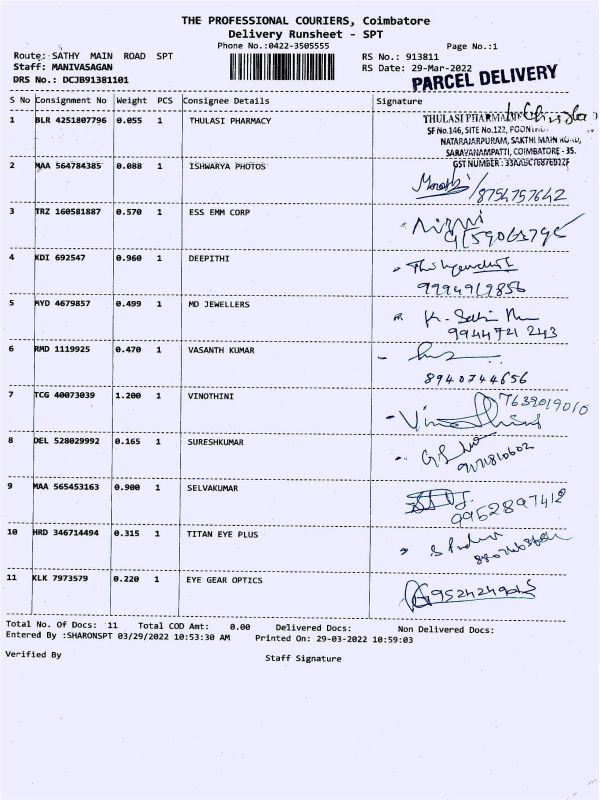 THE PROFESSIONAL COURIERS, Coimbatore
Delivery Runsheet - SPT
Phone No.:0422-3505555
Page No.:1
Route: SATHY MAIN ROAD SPT
RS No.: 913811
Staff: MANIVASAGAN
RS Date: 29-Mar-2022
DRS No.: DCJB91381101
PARCEL DELIVERY
S No Consignment No Weight PCS Consignee Details Signature
1 BLR 4251807796 0.055 1 THULASI PHARMACY
THULASI PHARMA
SF No.146, SITE No.122,
NATARAJARPURAM, SAKTHI MAIN ROAD,
SARAVANAMPATTI, COIMBATORE - 35.
GST NUMBER :
2 MAA 564784385 0.088 1 ISHWARYA PHOTOS
8754757642
3 TRZ 160581887 0.570 1 ESS EMM CORP
4 KDI 692547 0.960 1 DEEPITHI
9994919856
5 MYD 4679857 0.499 1 MD JEWELLERS
9944721 243
6 RMD 1119925 0.470 1 VASANTH KUMAR
8940744656
7 TCG 40073039 1.200 1 VINOTHINI
7639019010
Vinothini
8 DEL 528029992 0.165 1 SURESHKUMAR
9 MAA 565453163 0.900 1 SELVAKUMAR
9952897418
10 HRD 346714494 0.315 1 TITAN EYE PLUS
11 KLK 7973579 0.220 1 EYE GEAR OPTICS
Total No. Of Docs: 11 Total COD Amt: 0.00 Delivered Docs: Non Delivered Docs:
Entered By :SHARONSPT 03/29/2022 10:53:30 AM Printed On: 29-03-2022 10:59:03
Verified By
Staff Signature